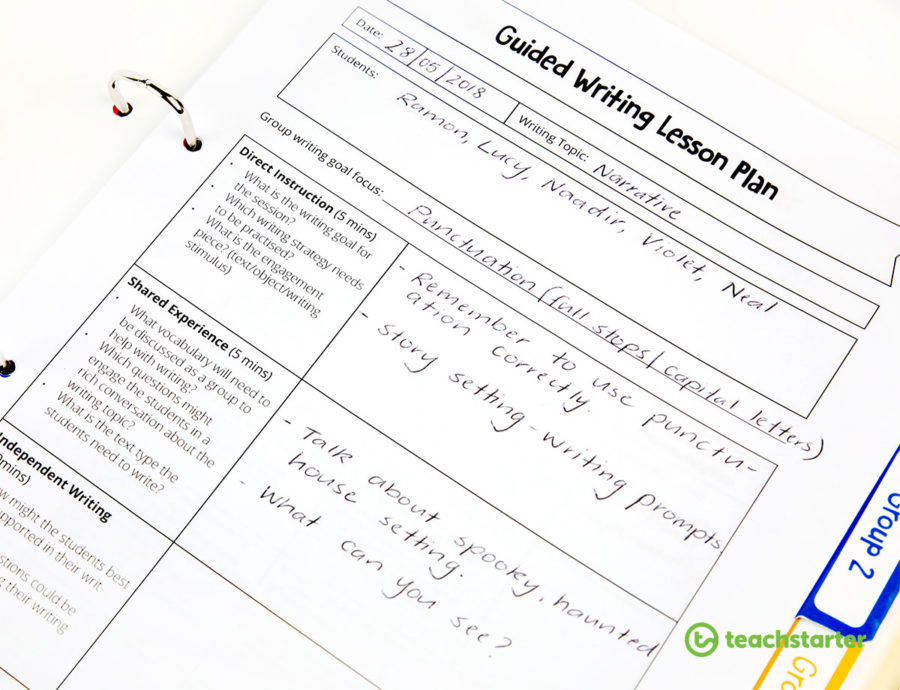 Guided Writing Lesson Plan
Date: 28/05/2018
Writing Topic: Narrative
Students:
Ramon, Lucy, Naadir, Violet, Neal
Group writing goal focus: Punctuation (full stops/capital letters)
Direct Instruction (5 mins)
• What is the writing goal for
the session?
• Which writing strategy needs
to be practised?
• What is the engagement
piece? (text/object/writing
stimulus)
- Remember to use punctu-
ation correctly.
- Story setting - writing prompts
Shared Experience (5 mins)
• What vocabulary will need to
be discussed as a group to
help with writing?
• Which questions might
engage the students in a
rich conversation about the
writing topic?
• What is the text type the
students need to write?
- Talk about spooky, haunted
house setting.
- What can you
see?
Independent Writing
mins)
might the students best
supported in their writ-
could be
their writing
Group 2
teachstarter